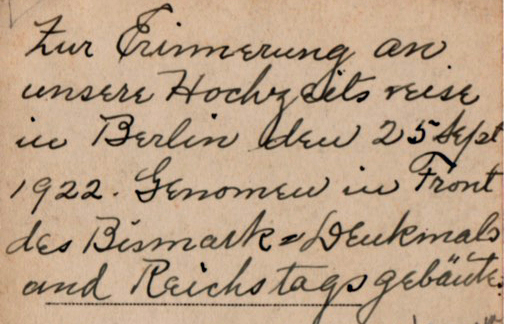 Zur Erinnerung an
unsere Hochzeits reise
in Berlin den 25 Sept
1922. Genomen in Front
des Bismark=Denkmals
and Reichstagsgebäute.